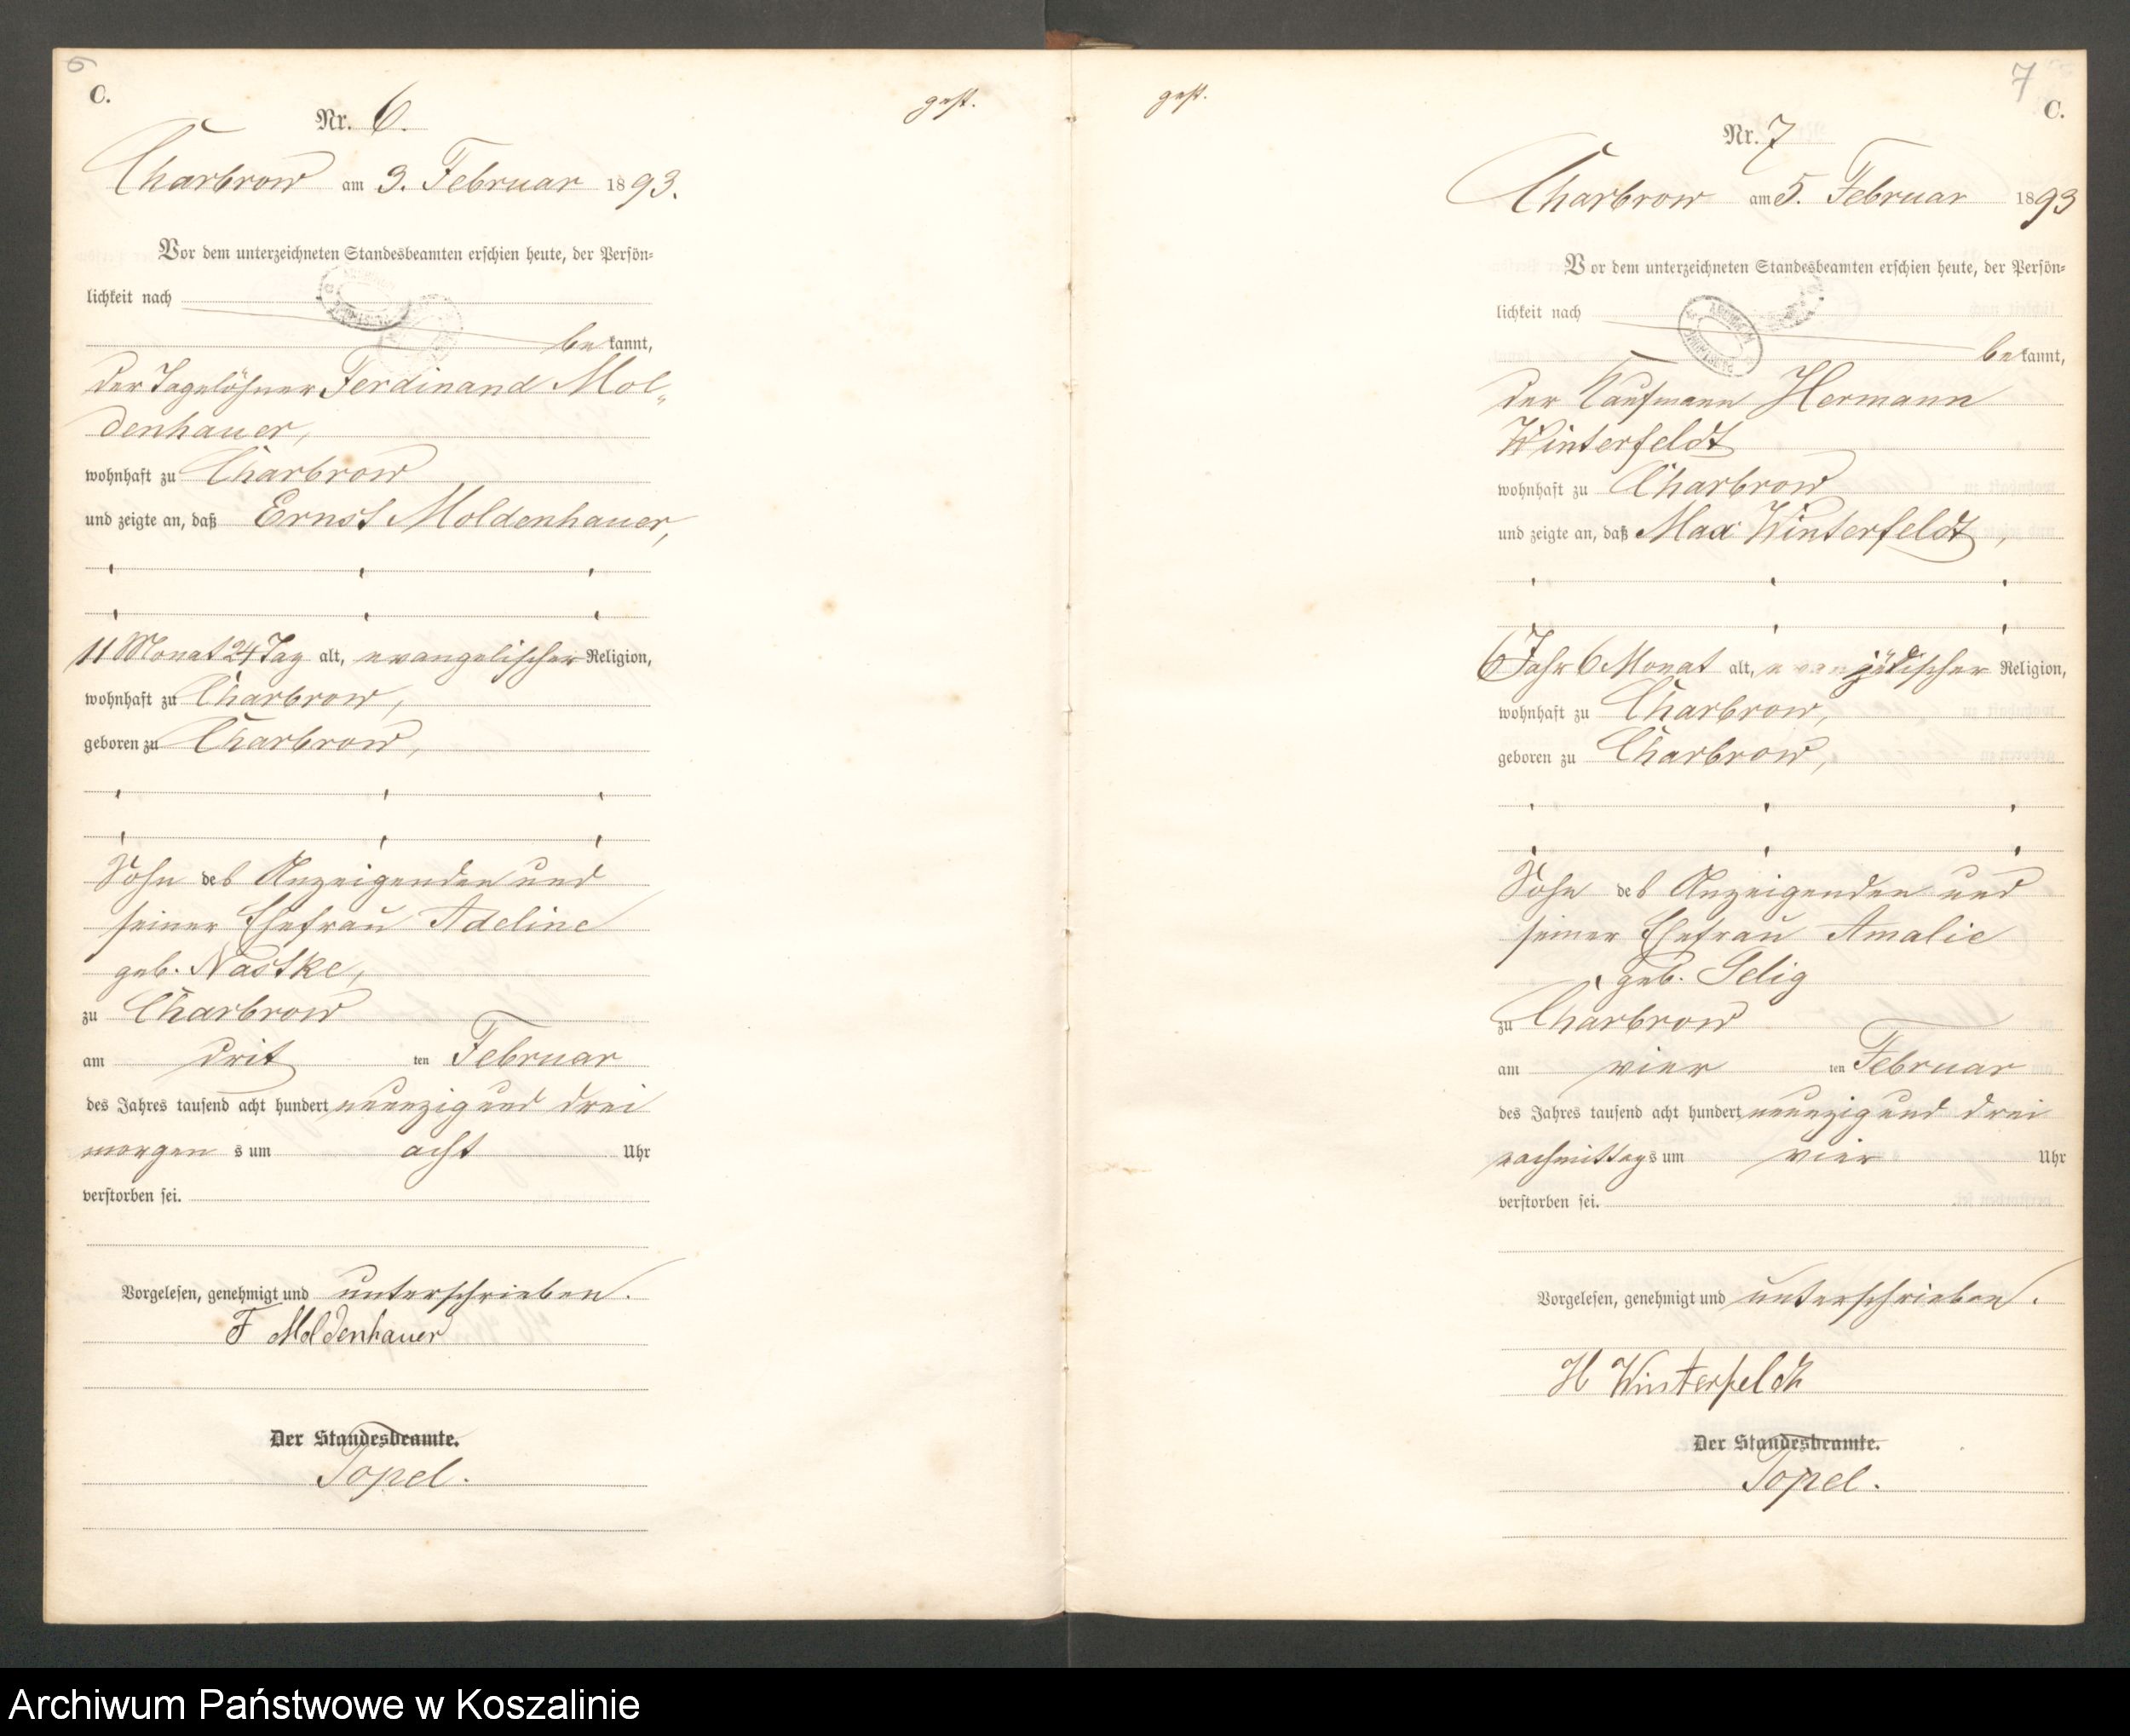 6
C.
gest.
Nr. 6.
Charbrow am 3. Februar 1893.
Vor dem unterzeichneten Standesbeamten erschien heute, der Persön-
lichkeit nach
bekannt,
der Tagelöhner Ferdinand Mol-
denhauer,
wohnhaft zu Charbrow
und zeigte an, daß Ernst Moldenhauer,
11 Monat 24 Tag alt, evangelischer Religion,
wohnhaft zu Charbrow,
geboren zu Charbrow,
Sohn des Anzeigenden und
seiner Ehefrau Adeline
geb. Nastke,
zu Charbrow
am drit ten Februar
des Jahres tausend acht hundert neunzig und drei
morgens um acht Uhr
verstorben sei.
Vorgelesen, genehmigt und unterschrieben.
F Moldenhauer
Der Standesbeamte.
Topel.
gest.
7
C.
Nr. 7
Charbrow am 5. Februar 1893
Vor dem unterzeichneten Standesbeamten erschien heute, der Persön-
lichkeit nach
bekannt,
der Kaufmann Hermann
Winterfeldt
wohnhaft zu Charbrow
und zeigte an, daß Max Winterfeldt,
6 Jahr 6 Monat alt, jüdischer Religion,
wohnhaft zu Charbrow,
geboren zu Charbrow,
Sohn des Anzeigenden und
seiner Ehefrau Amalie
geb. Selig
zu Charbrow
am vier ten Februar
des Jahres tausend acht hundert neunzig und drei
nachmittags um vier Uhr
verstorben sei.
Vorgelesen, genehmigt und unterschrieben.
H Winterfeldt
Der Standesbeamte.
Topel.
Archiwum Państwowe w Koszalinie